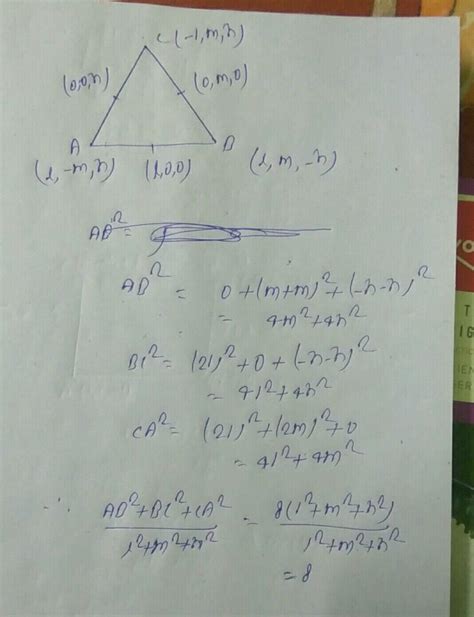 C(-1, m, n)
(0,0,n)
(0,m,0)
A
B
(l, -m, n)
(l,0,0)
(l, m, -n)
AB² =
AB² = 0 + (m+m)² + (-n-n)²
= 4m² + 4n²
BC² = (2l)² + 0 + (-n-n)²
= 4l² + 4n²
CA² = (2l)² + (2m)² + 0
= 4l² + 4m²
∴ AB² + BC² + CA² / l² + m² + n² = 8(l² + m² + n²) / l² + m² + n²
= 8